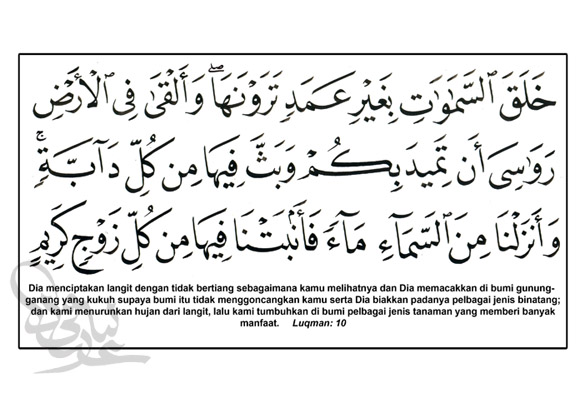 خَلَقَ ٱلسَّمَٰوَٰتِ بِغَيْرِ عَمَدٍ تَرَوْنَهَا ۖ وَأَلْقَىٰ فِى ٱلْأَرْضِ
رَوَٰسِىَ أَن تَمِيدَ بِكُمْ وَبَثَّ فِيهَا مِن كُلِّ دَآبَّةٍ ۚ
وَأَنزَلْنَا مِنَ ٱلسَّمَآءِ مَآءً فَأَنۢبَتْنَا فِيهَا مِن كُلِّ زَوْجٍ كَرِيمٍ
Dia menciptakan langit dengan tidak bertiang sebagaimana kamu melihatnya dan Dia memacakkan di bumi gunung-
ganang yang kukuh supaya bumi itu tidak menggoncangkan kamu serta Dia biakkan padanya pelbagai jenis binatang;
dan kami menurunkan hujan dari langit, lalu kami tumbuhkan di bumi pelbagai jenis tanaman yang memberi banyak
manfaat. Luqman: 10